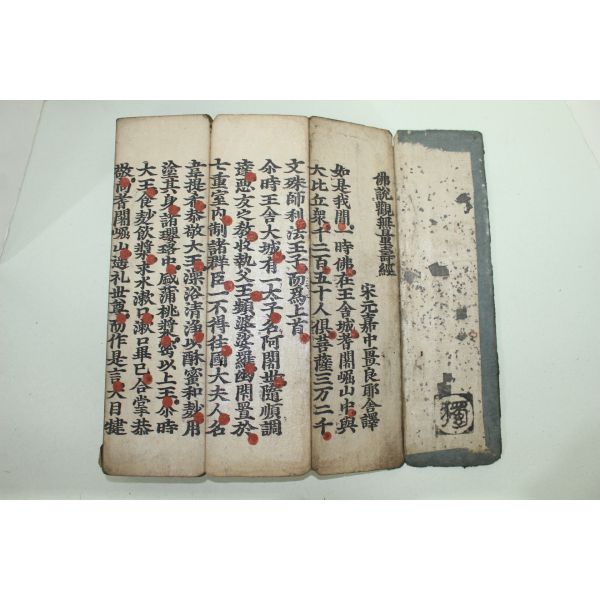 佛說觀無量壽經
宋元嘉中畺良耶舍譯
如是我聞一時佛在王舍城耆闍崛山中與
大比丘衆千二百五十人俱菩薩三万二千
文殊師利法王子而為上首
尒時王舍大城有一太子名阿闍世隨順調
達惡友之教收執父王頻婆娑羅幽閉置於
七重室内制諸群臣一不得往國大夫人名
韋提希恭敬大王澡浴清淨以酥蜜和麨用
塗其身諸瓔珞中盛蒲桃漿密以上王尒時
大王食麨飲漿求水漱口漱口畢已合掌恭
敬向耆闍崛山遥礼世尊而作是言大目揵
獨